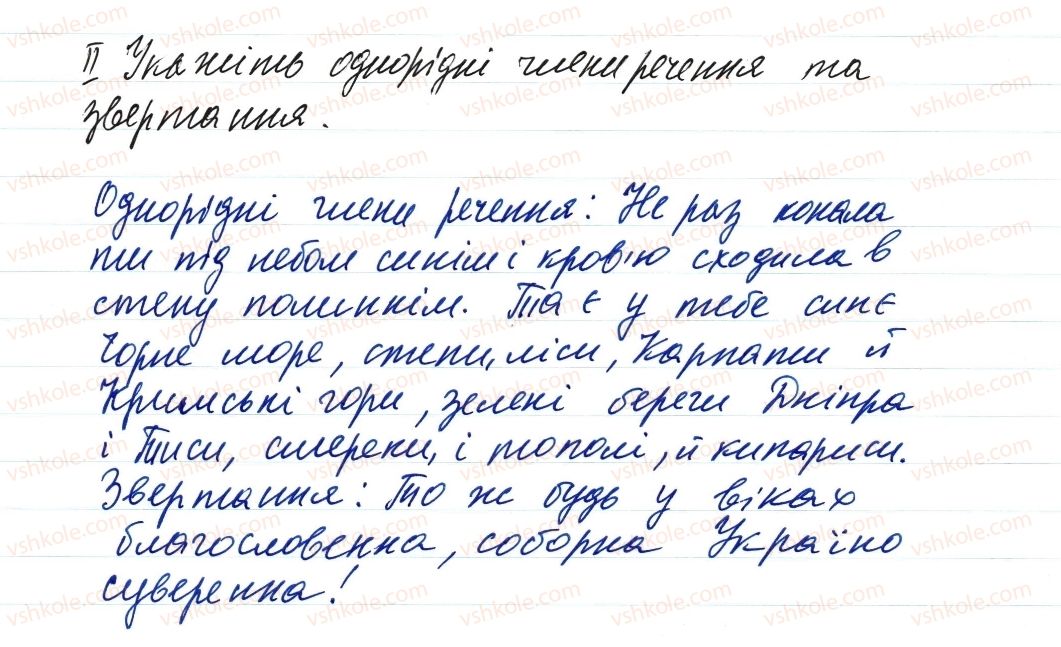 II Укажіть однорідні члени речення та
звертання.
Однорідні члени речення: Не раз конала
ти під небом синім і кров'ю сходила в
степу полиннім. Та є у тебе синє
Чорне море, степи, ліси, Карпати й
Кримські гори, зелені береги Дніпра
і Тиси, смереки, і тополі, й кипариси.
Звертання: То ж будь у віках
благословенна, соборна Україно
суверенна!